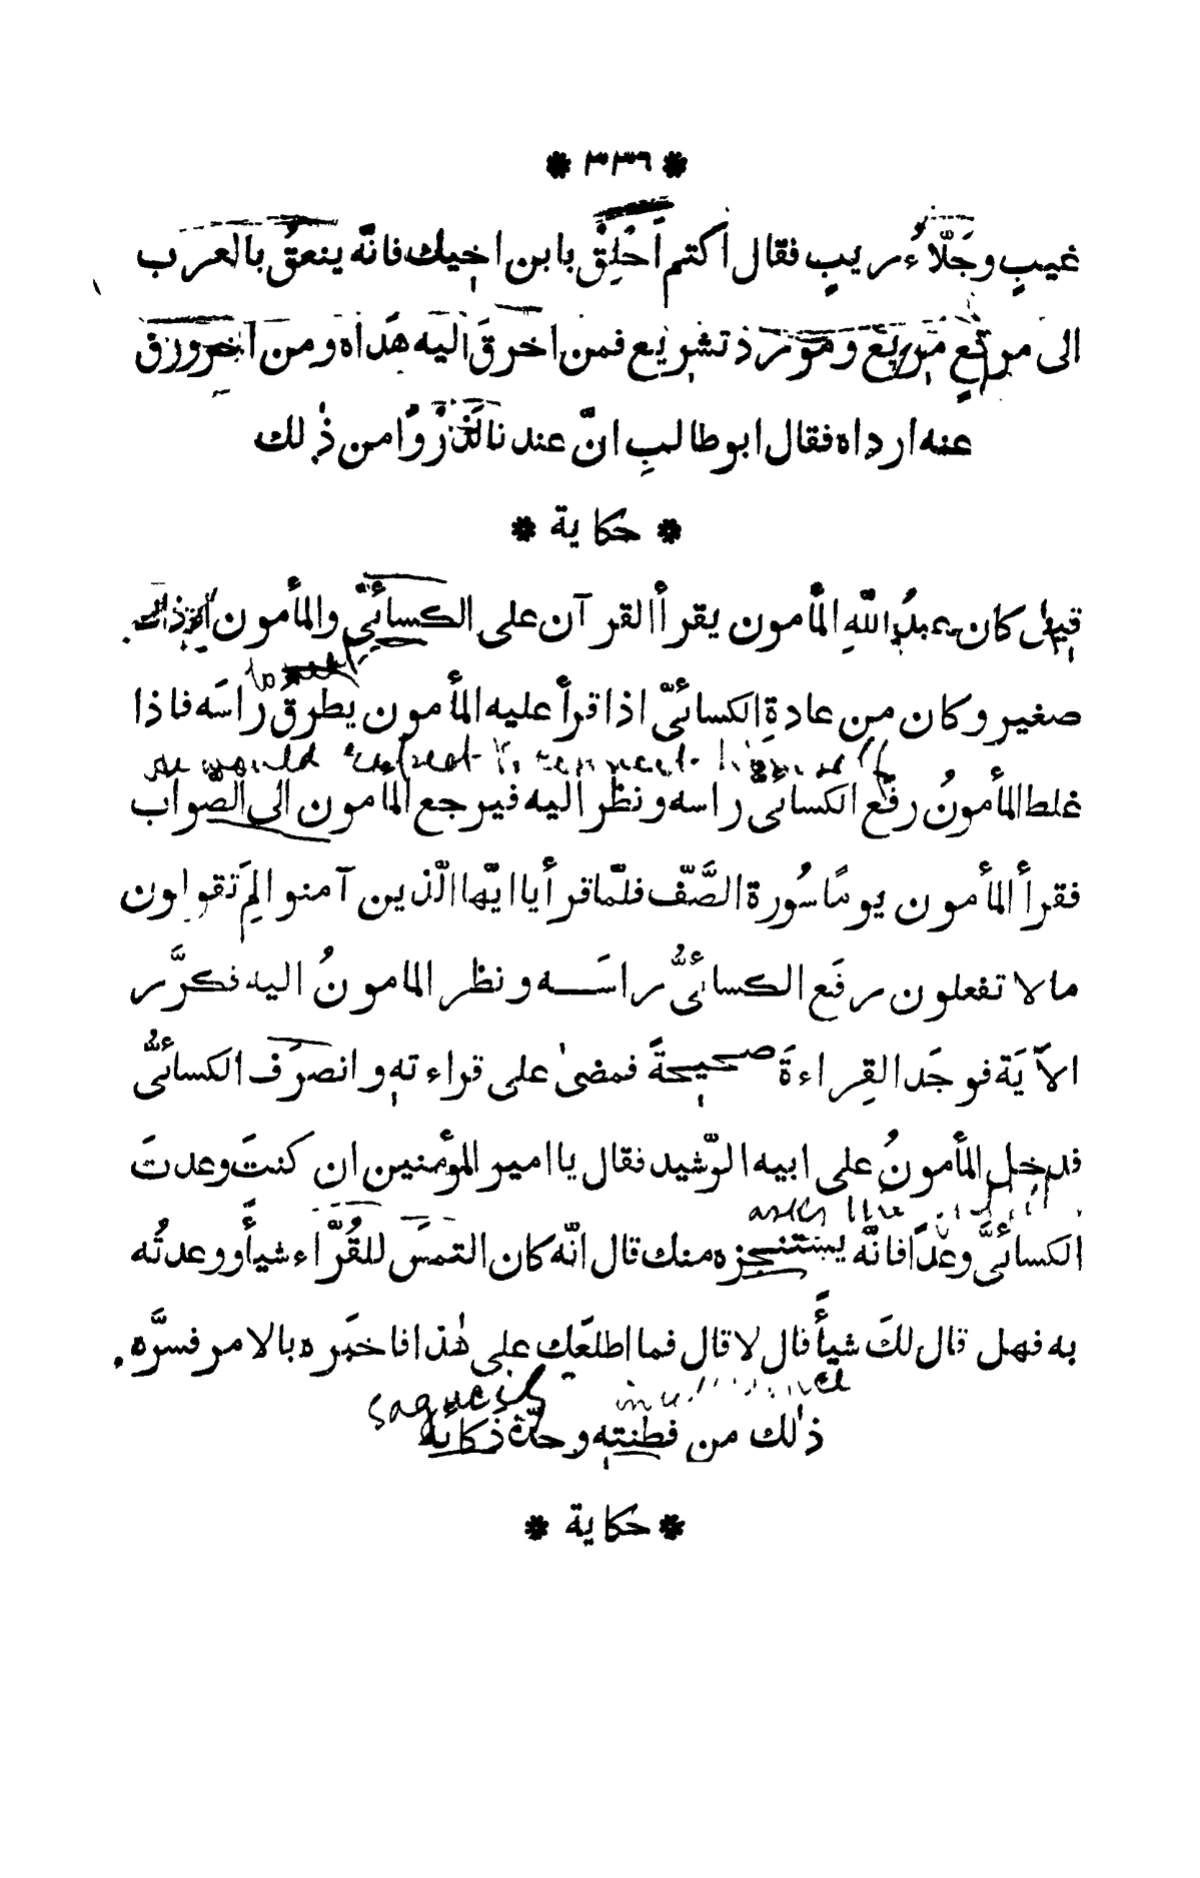 * ٣٣٦ *
غيبٍ وجَلّاءُ ريبٍ فقال اكتم اَخْلِقْ بابن اخيك فانّه ينعقُ بالعرب
الى مرتعٍ مريعٍ و موردِ تشريع فمن اخرقَ اليه هَداه ومن
عنه ارداه فقال ابوطالبِ انّ عندنا من ذٰلك
* حكاية *
قيل كان عبدُ اللّهِ المأمون يقرأ القرآن على الكسائيّ والمأمون اذ ذاك
صغير وكان من عادةِ الكسائيّ اذا قرأ عليه المأمون يطرقُ راسَه فاذا
he would expect to
غلط المأمونُ رفَع الكسائيُّ راسه ونظر اليه فيرجع المأمون الى الصّواب
فقرأ المأمون يومًا سُورة الصَّفّ فلمّا قرأ يا ايّها الّذين آمنوا لِمَ تقولون
ما لا تفعلون رفَع الكسائيُّ راسَـــه ونظر المامونُ اليه فكرَّر
الآيَة فوجَد القِراءةَ صحيحةً فمضىٰ على قراءته وانصرَف الكسائيُّ
فدخل المأمونُ على ابيه الرّشيد فقال يا امير المؤمنين ان كنتَ وعدتَ
asks the
الكسائيَّ وعدًا فانّه يستنجزه منك قال انّه كان التمسَ للقُرّاء شيأً ووعدتُه
به فهل قال لكَ شيأً قال لا قال فما اطلعَك على هٰذا فاخبَره بالامر فسرَّه
sagacity
ذٰلك من فطنته وحدّة ذكائه
* حكاية *